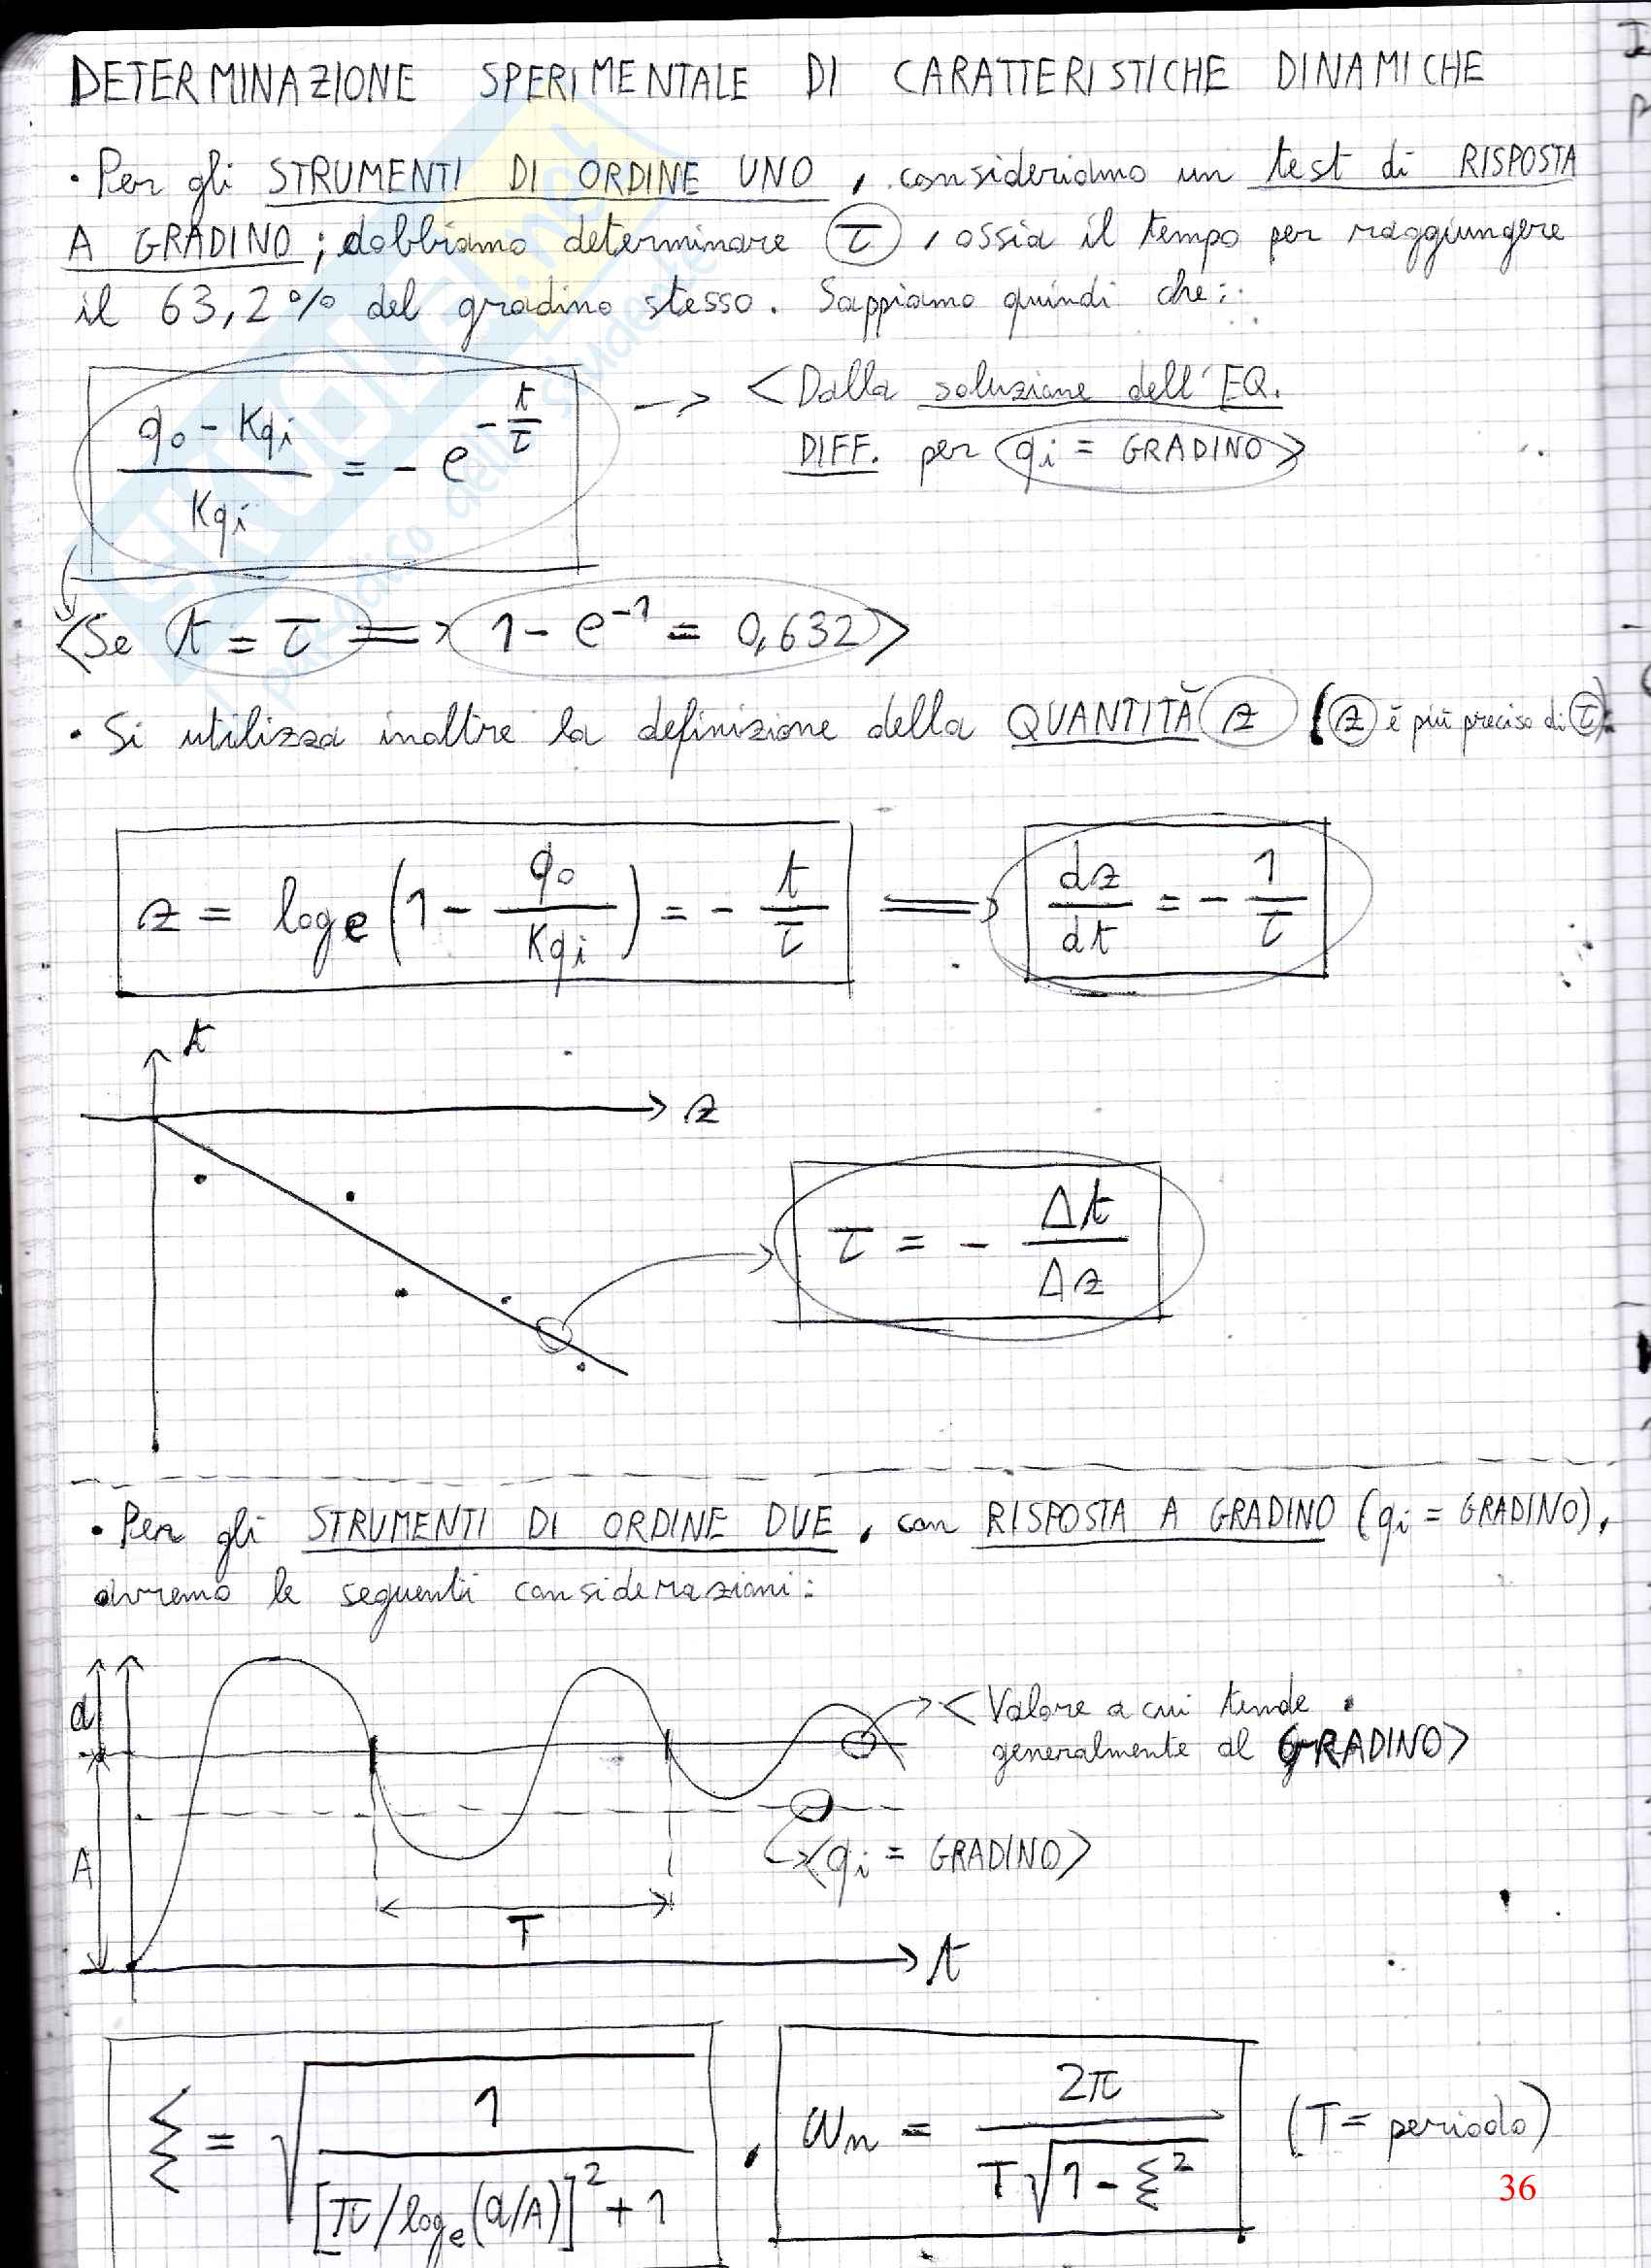 DETERMINAZIONE SPERIMENTALE DI CARATTERISTICHE DINAMICHE
• Per gli STRUMENTI DI ORDINE UNO, consideriamo un test di RISPOSTA
A GRADINO; dobbiamo determinare τ, ossia il tempo per raggiungere
il 63,2% del gradino stesso. Sappiamo quindi che:
(q₀ - Kqᵢ) / Kqᵢ = - e^(-t/τ) -> <Dalla soluzione dell'EQ.
DIFF. per qᵢ = GRADINO>
<Se t = τ => 1 - e⁻¹ = 0,632>
• Si utilizza inoltre la definizione della QUANTITÀ z (z è più preciso di τ).
z = logₑ(1 - q₀/Kqᵢ) = - t/τ => dz/dt = - 1/τ
t
z
τ = - Δt/Δz
• Per gli STRUMENTI DI ORDINE DUE, con RISPOSTA A GRADINO (qᵢ = GRADINO),
avremo le seguenti considerazioni:
a
<Valore a cui tende
generalmente al GRADINO>
A
<qᵢ = GRADINO>
T
t
ξ = √(1 / ([π/logₑ(a/A)]² + 1)), ωₙ = 2π / (T√(1 - ξ²)) (T = periodo)
36